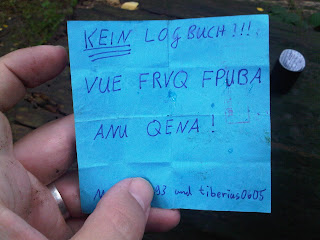 KEIN LOGBUCH!!!
VUE FRVQ FPUBA
ANU QENA!
und tiberius0605